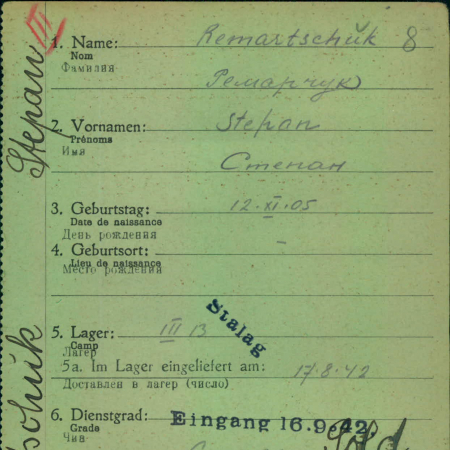 III
1. Name: Remartschŭk 8
Nom
Фамилия
Ремарчук
2. Vornamen: Stepan
Prénoms
Имя
Степан
3. Geburtstag: 12.XI.05
Date de naissance
День рождения
4. Geburtsort: –
Lieu de naissance
Место рождения
5. Lager: III B
Camp
Лагерь
Stalag
5a. Im Lager eingeliefert am: 17.8.42
Доставлен в лагерь (число)
6. Dienstgrad: Eingang 16.9.42
Grade
Чин
Sold
Stepan